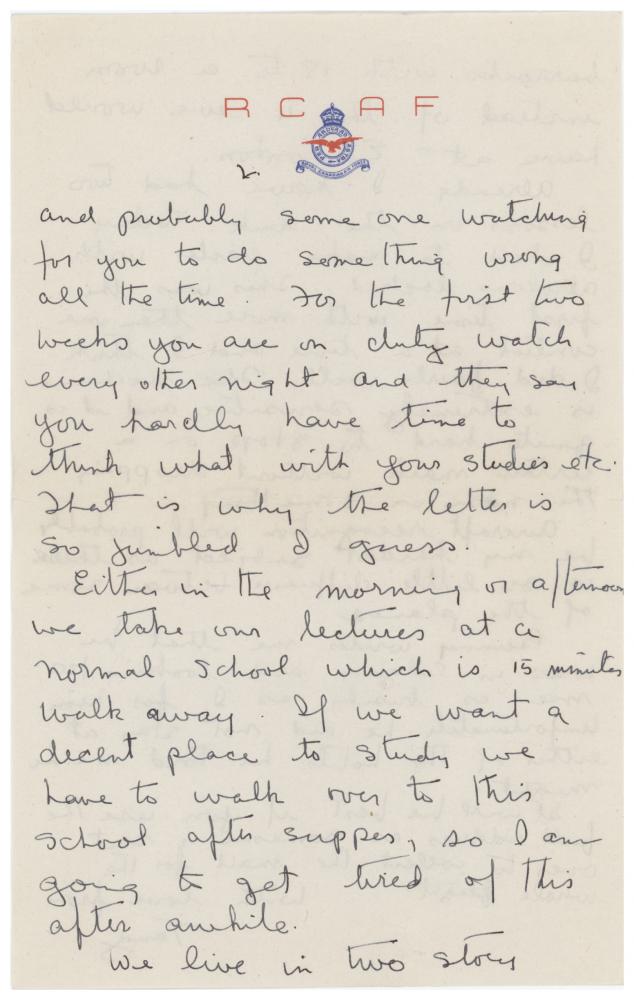 R C A F
PER ARDUA AD ASTRA
ROYAL CANADIAN AIR FORCE
2.
and probably some one watching
for you to do something wrong
all the time. For the first two
weeks you are on duty watch
every other night and they say
you hardly have time to
think what with your studies etc.
That is why the letter is
so jumbled I guess.
Either in the morning or afternoon
we take our lectures at a
normal school which is 15 minutes
walk away. If we want a
decent place to study we
have to walk over to this
school after supper, so I am
going to get tired of this
after awhile.
We live in two story